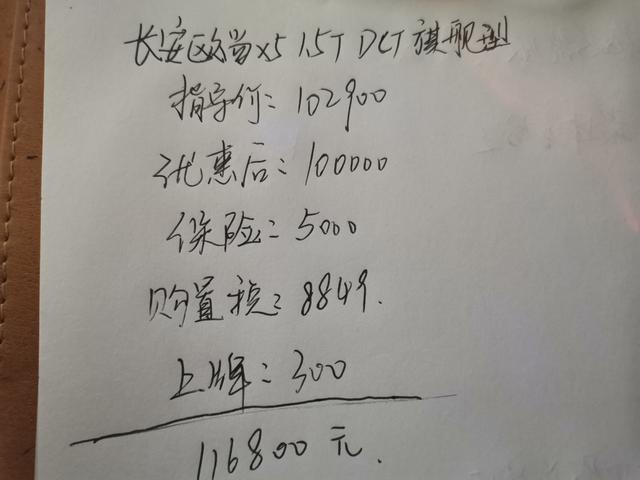 长安欧尚x5 1.5T DCT 旗舰型
指导价：102900
优惠后：100000
保险：5000
购置税：8849.
上牌：300
116800 元.